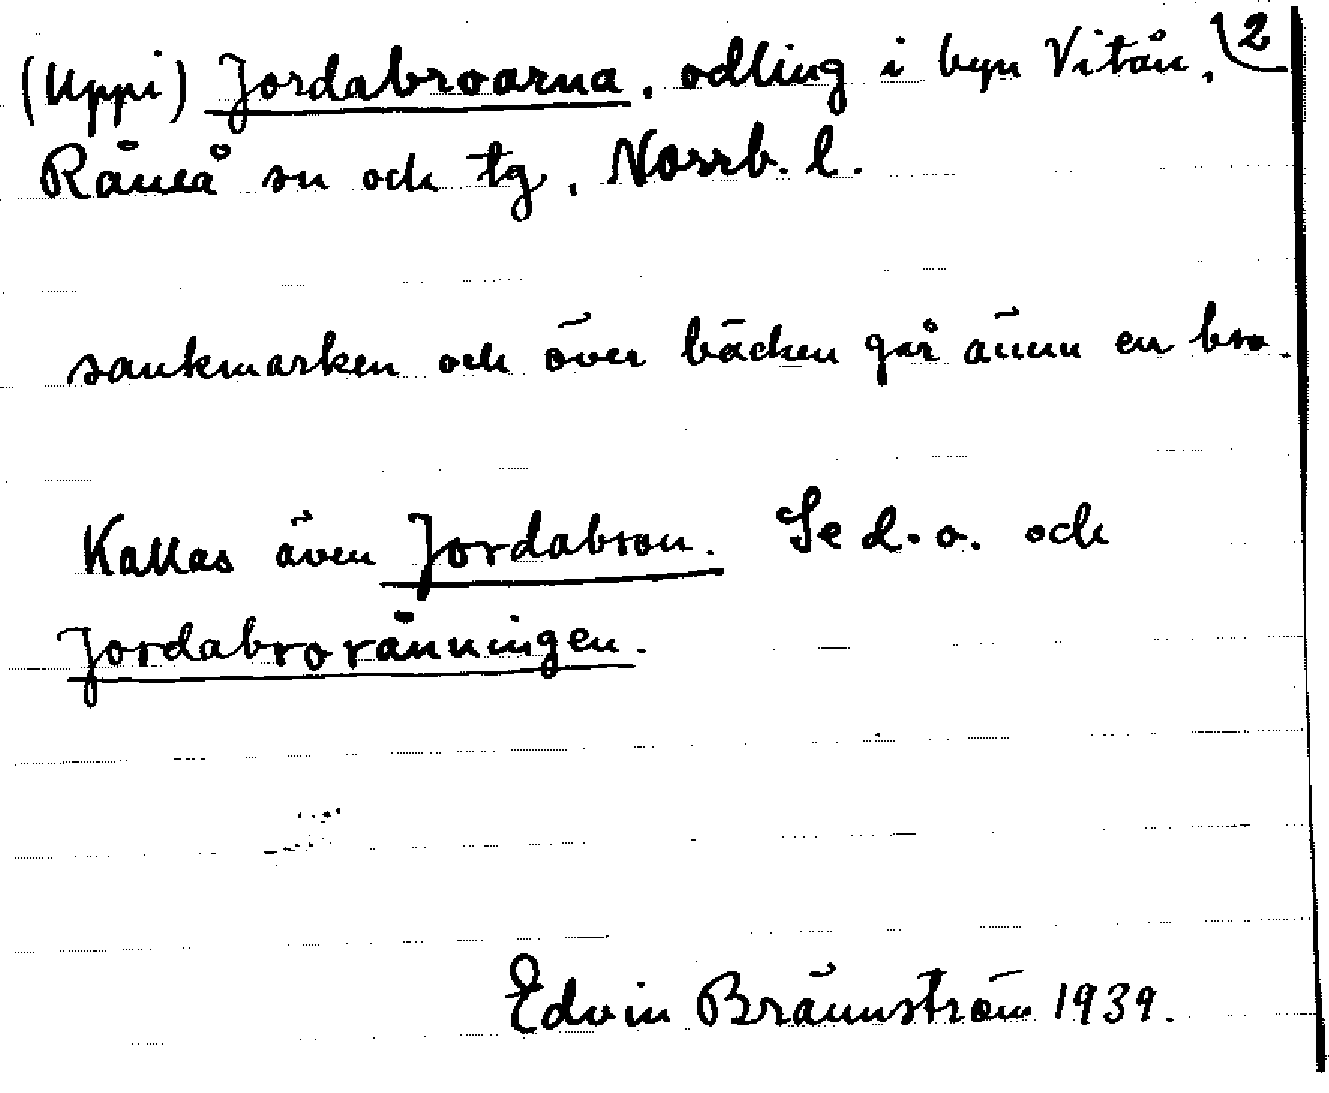 (Uppi) Jordabroarna, odling i byn Vitån, 2
Råneå sn och tg, Norrb. l.
sankmarken och över bäcken går ännu en bro.
Kallas även Jordabron. Se d. o. och
Jordabroränningen.
Edvin Brännström 1939.